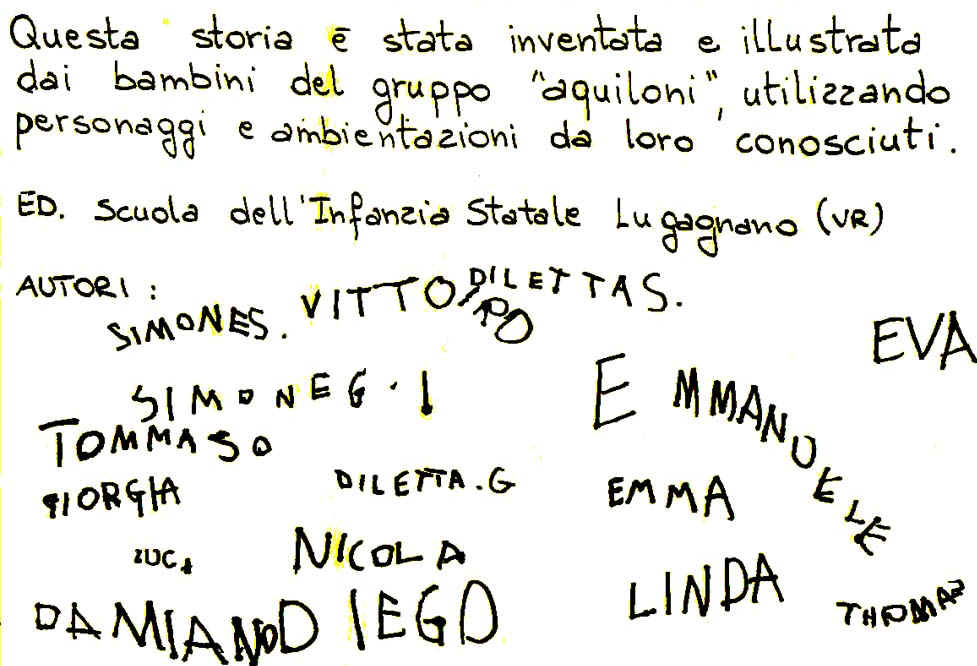 Questa storia è stata inventata e illustrata
dai bambini del gruppo "aquiloni", utilizzando
personaggi e ambientazioni da loro conosciuti.
ED. Scuola dell'Infanzia Statale Lugagnano (VR)
AUTORI :
SIMONE S. VITTOIRO DILETTA S.
EVA
SIMONE G. I
EMMANUELE
TOMMASO
GIORGIA DILETTA.G EMMA
LUCA NICOLA
DAMIANO DIEGO LINDA THOMAS